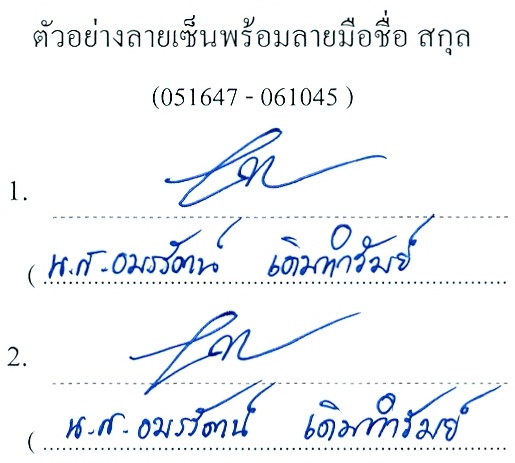 ตัวอย่างลายเซ็นพร้อมลายมือชื่อ สกุล
(051647 - 061045 )
1.
( น.ส. อมรรัตน์ เดิมทำรัมย์
2.
( น.ส. อมรรัตน์ เดิมทำรัมย์